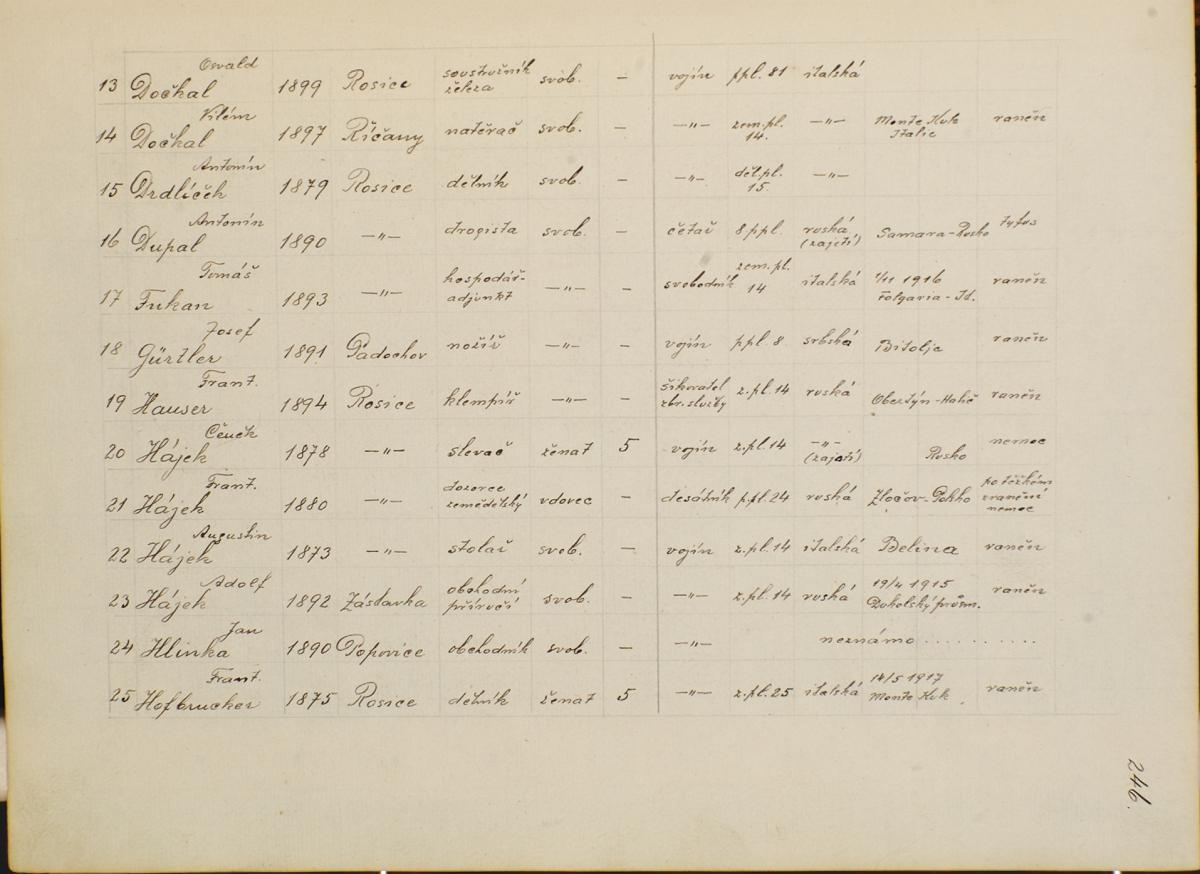 Osvald soustružník
13 Dočkal 1899 Rosice železa svob. — vojín ppl. 81 italská
Vilém
14 Dočkal 1897 Říčany natěrač svob. — —„— zem. pl. 14. —„— Monte Kuk Italie raněn
Antonín
15 Drdlíček 1879 Rosice dělník svob. — —„— děl. pl. 15. —„—
Antonín
16 Dupal 1890 —„— drogista svob. — četař 8 ppl. ruská (zajetí) Samara-Rusko tyfus
Tomáš
17 Fukan 1893 —„— hospodář-adjunkt —„— — svobodník zem. pl. 14 italská 1916 Folgaria - It. raněn
Josef
18 Gürtler 1891 Padochov nožíř —„— — vojín ppl. 8. srbská Bitolje raněn
Frant.
19 Hauser 1894 Rosice klempíř —„— — šikovatel zbr. služby z. pl. 14 ruská Obertýn-Halič raněn
Čeněk
20 Hájek 1878 —„— slevač ženat 5 vojín z. pl. 14 —„— (zajetí) Rusko nemoc
Frant.
21 Hájek 1880 —„— dozorce zemědělský vdovec — desátník p.pl. 24 ruská Zločov- po těžkém zranění nemoc
Augustin
22 Hájek 1873 —„— stolař svob. — vojín z. pl. 14 italská Belina raněn
Adolf
23 Hájek 1892 Zástavka obchodní příručí svob. — —„— z. pl. 14 ruská 19/4 1915 Dukelský průsm. raněn
Jan
24 Hlinka 1890 Popovice obchodník svob. — —„— neznámo . . . . . . . . . .
Frant.
25 Hofbrucher 1875 Rosice dělník ženat 5 —„— z. pl. 25 italská 14/5 1917 Monte Kuk raněn
246.